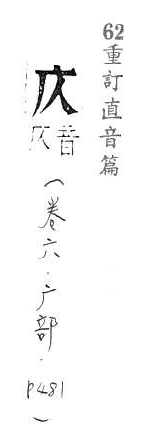 62重訂直音篇
庂
音仄
(卷六·广部·p481)